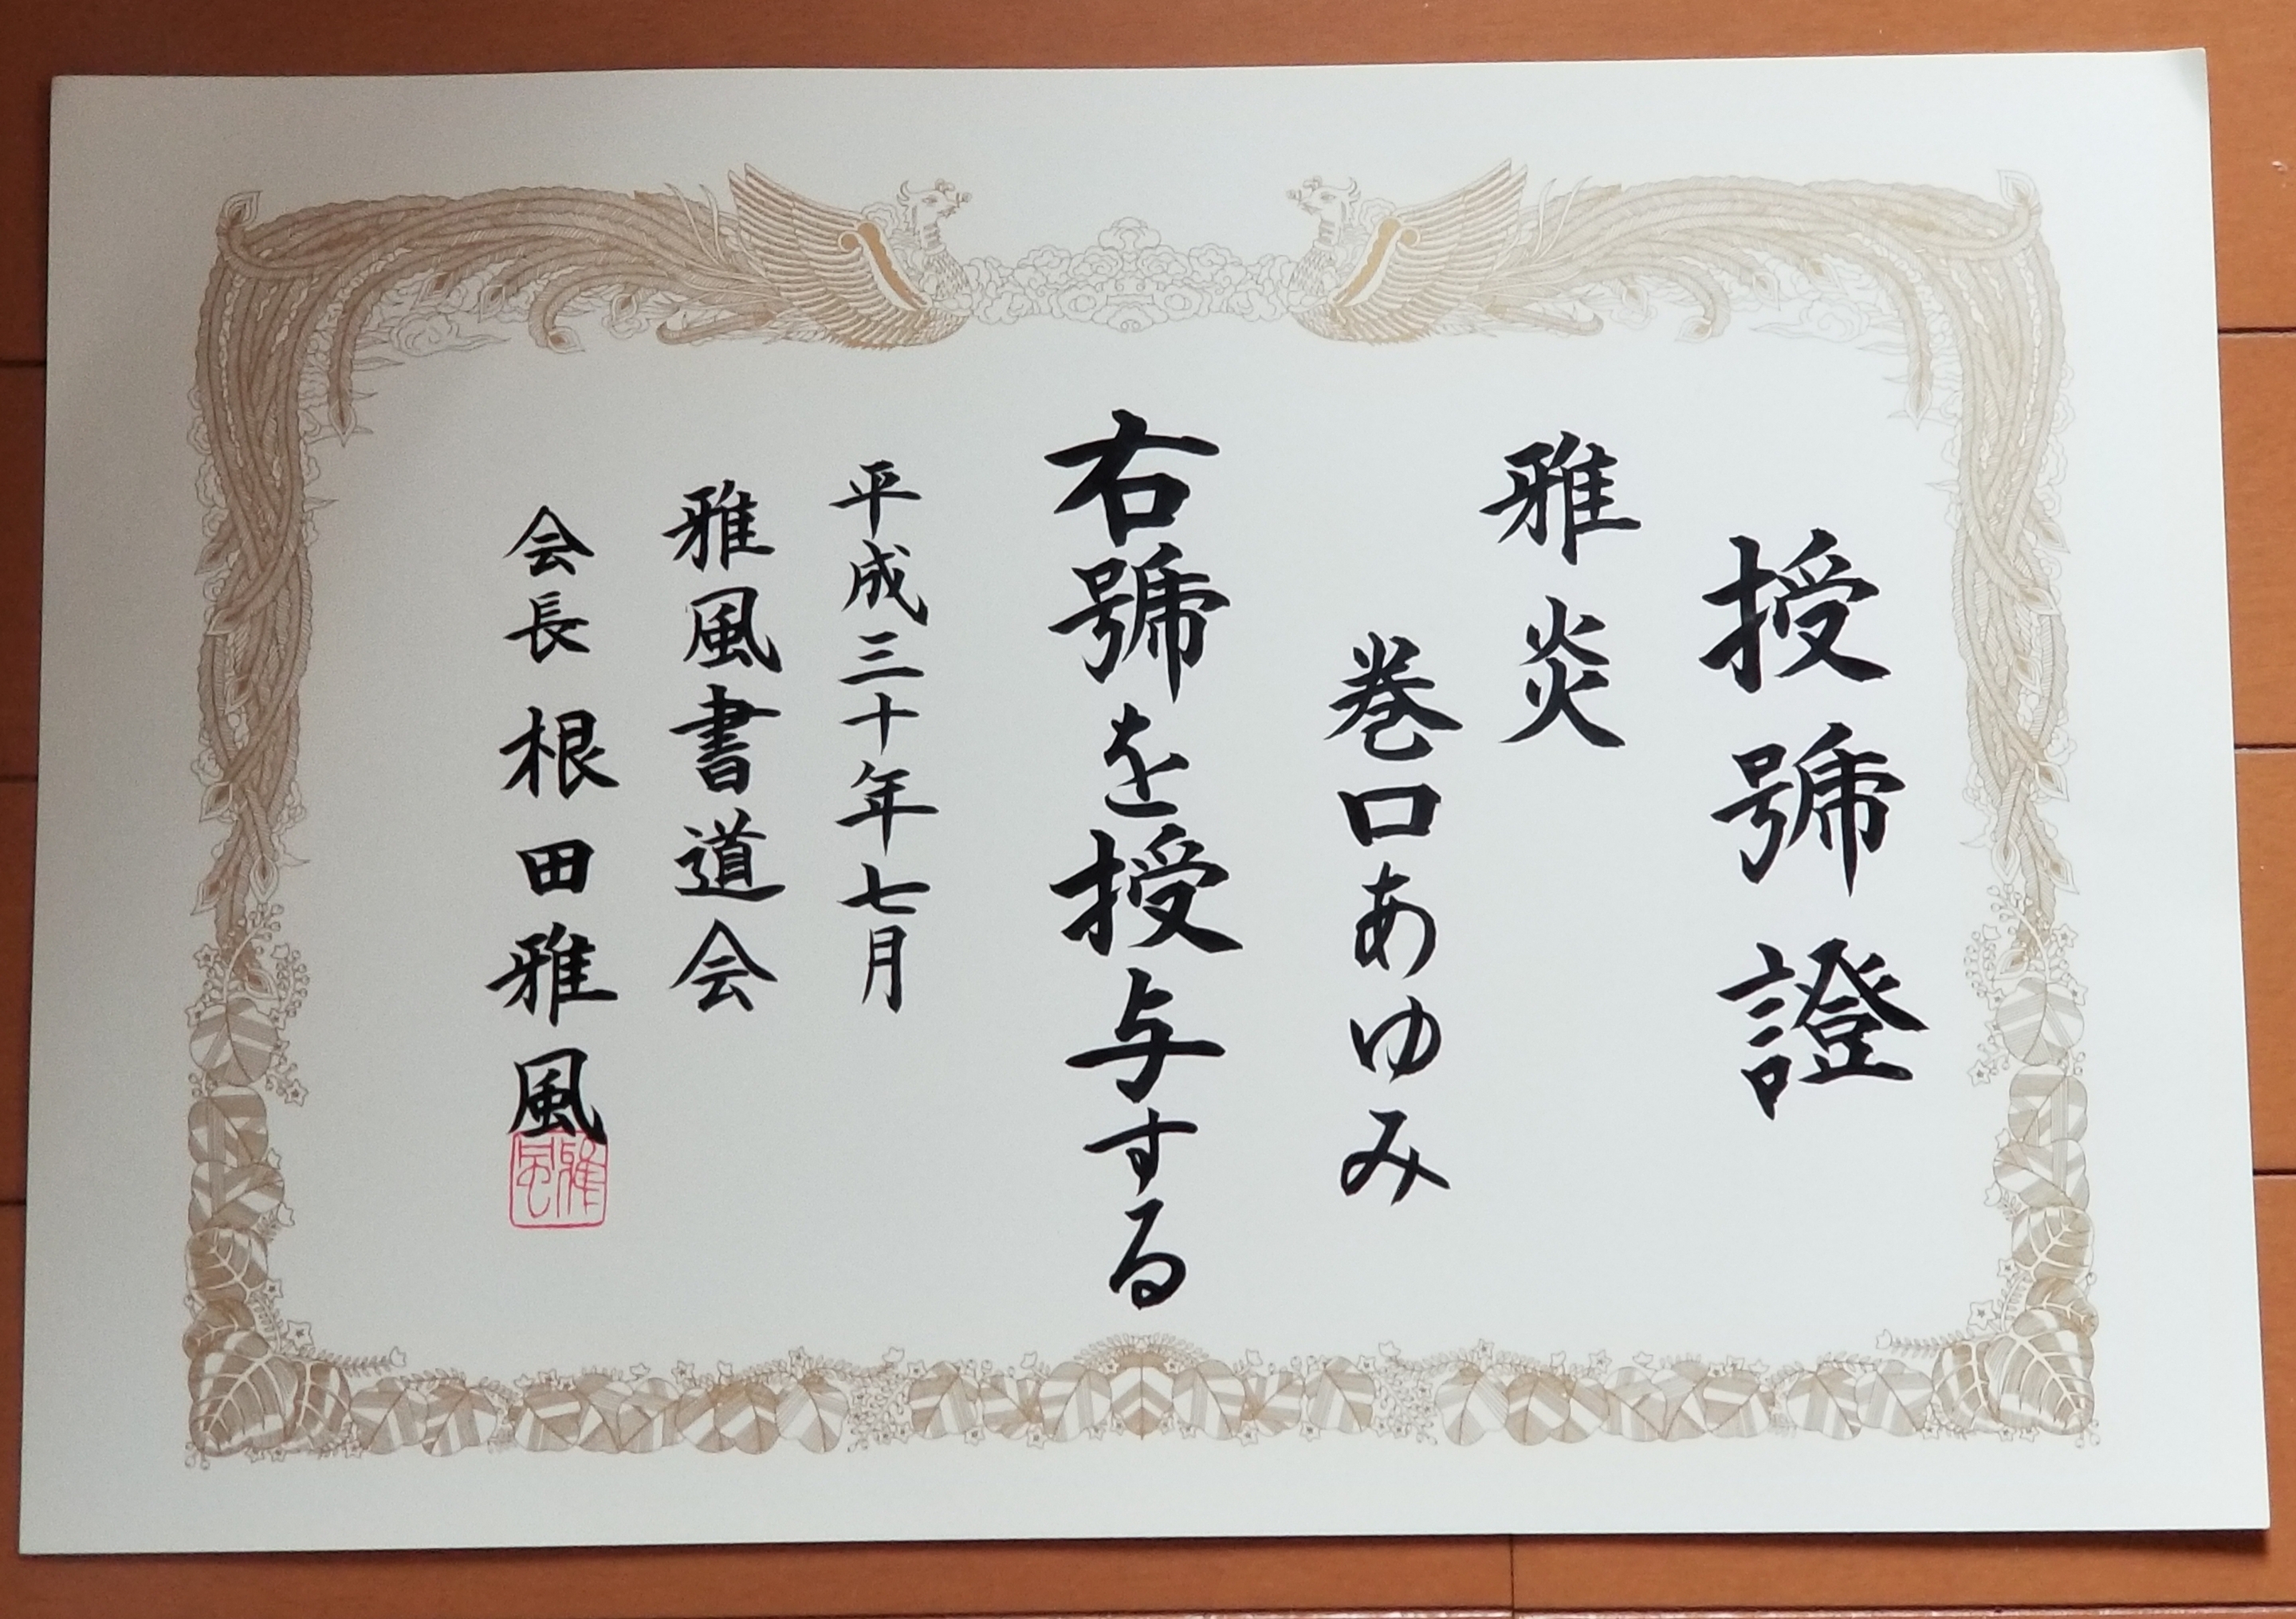 授號證
雅炎
巻口あゆみ
右號を授与する
平成三十年七月
雅風書道会
会長 根田雅風
雅風